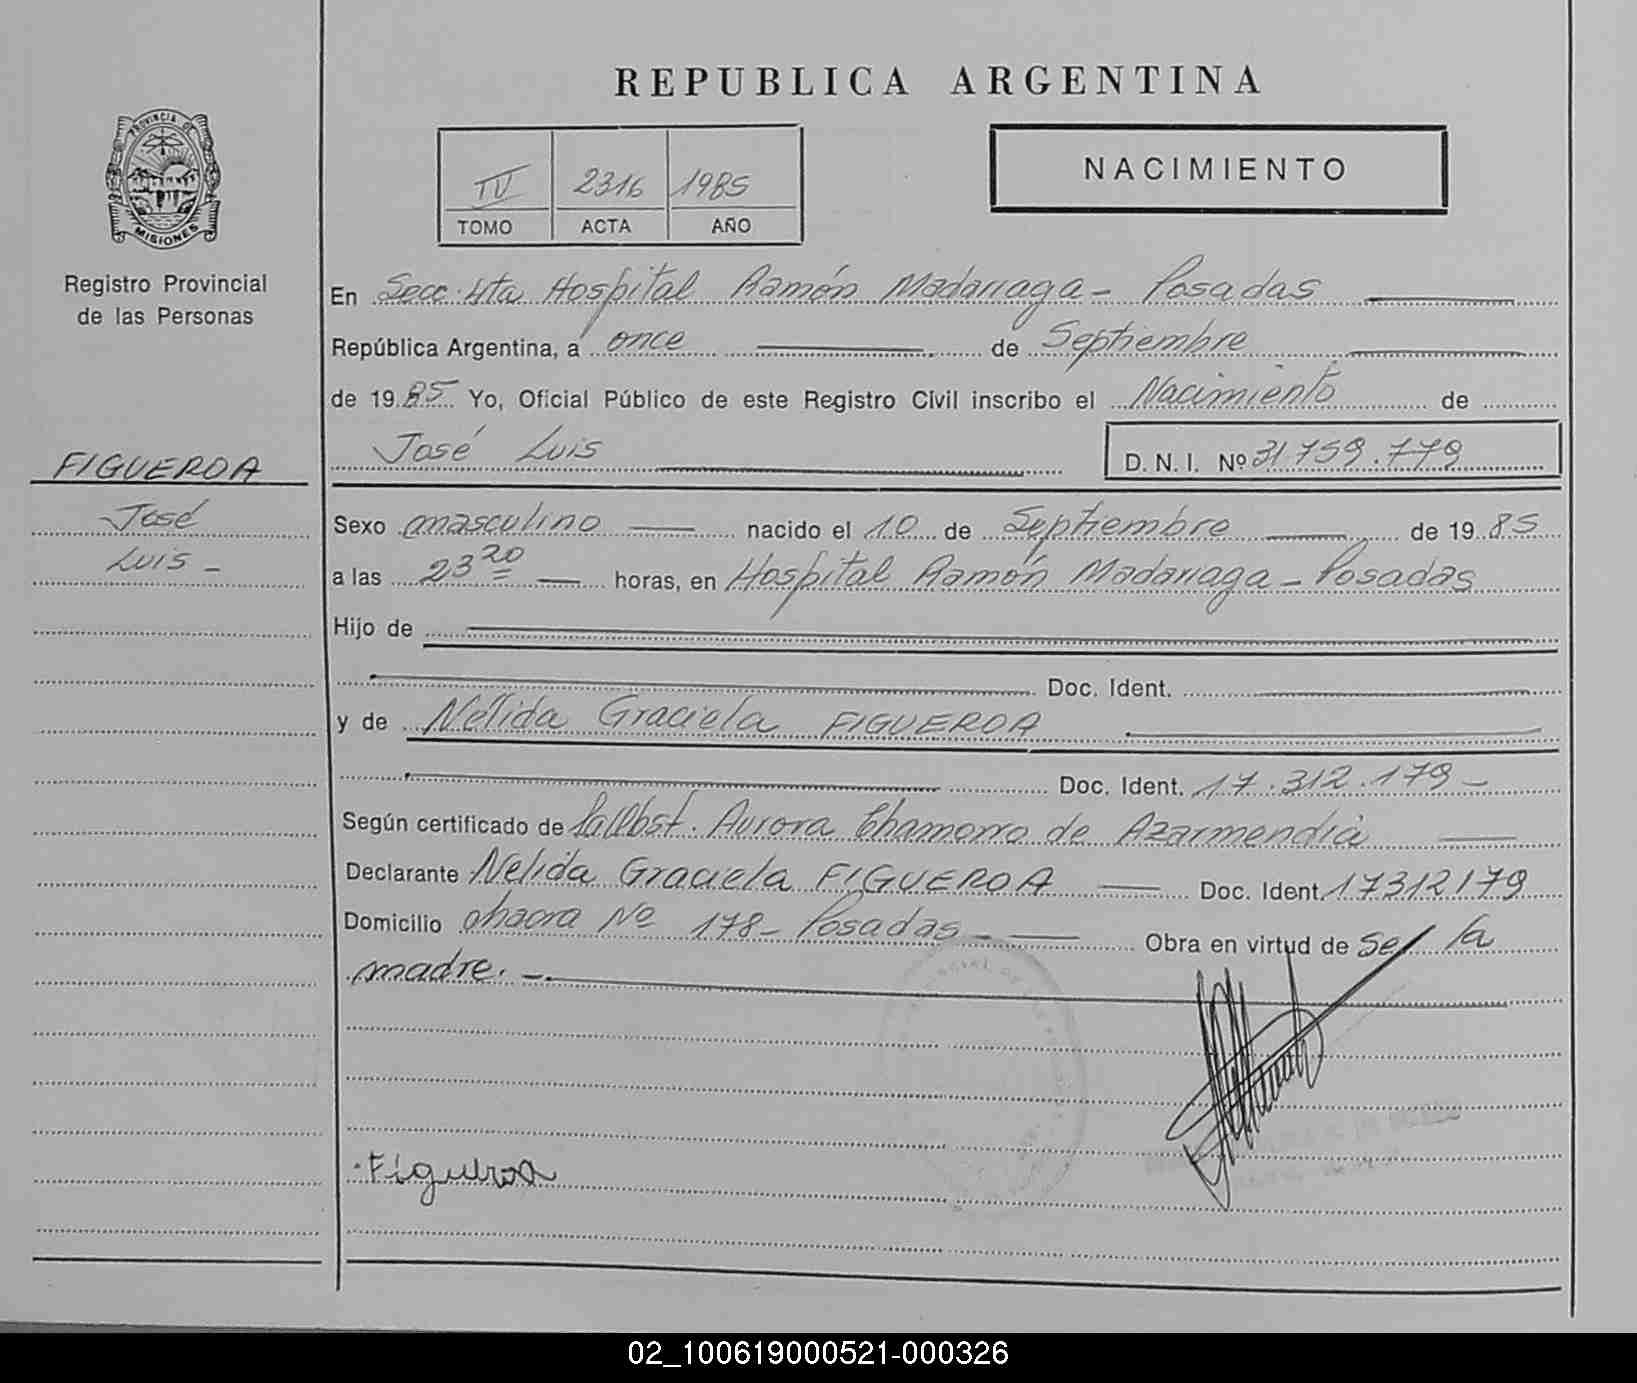 REPUBLICA ARGENTINA
PROVINCIA DE
MISIONES
Registro Provincial
de las Personas
IV 2316 1985
TOMO ACTA AÑO
NACIMIENTO
En Secc. 4ta Hospital Ramón Madariaga - Posadas
República Argentina, a once de Septiembre
de 1985 Yo, Oficial Público de este Registro Civil inscribo el Nacimiento de
José Luis D. N. I. Nº 31.759.779
FIGUEROA
José
Luis -
Sexo masculino nacido el 10 de Septiembre de 1985
a las 23 20 horas, en Hospital Ramón Madariaga - Posadas
Hijo de
Doc. Ident.
y de Nelida Graciela FIGUEROA
Doc. Ident. 17.312.179 -
Según certificado de Aurora Chamorro de Azarmendia
Declarante Nelida Graciela FIGUEROA Doc. Ident. 17312179
Domicilio chacra Nº 178 - Posadas - Obra en virtud de ser la
madre. -
Figueroa
02_100619000521-000326